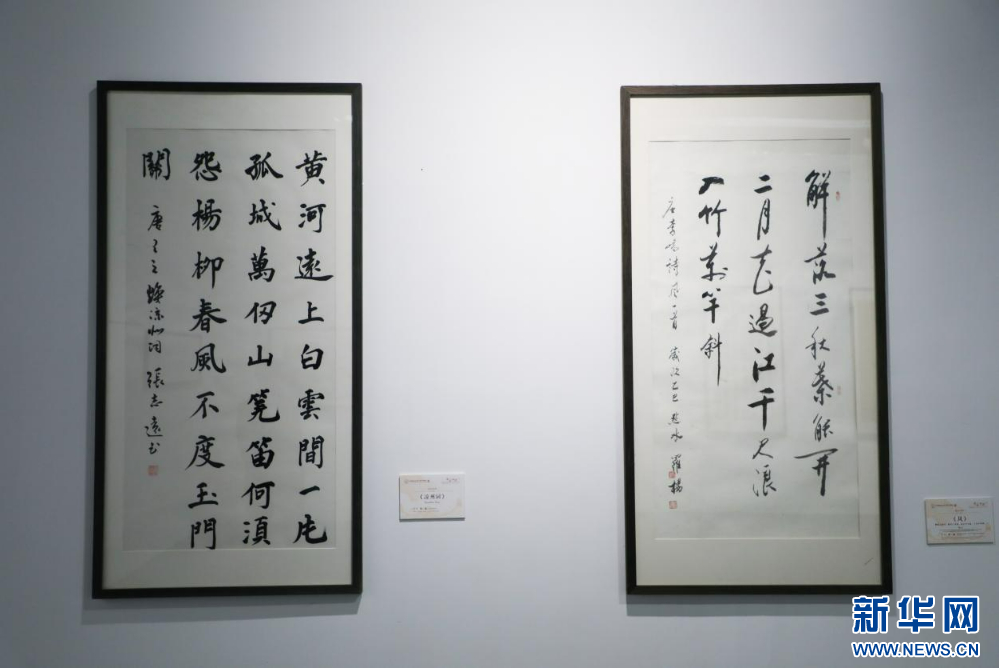 黄河遠上白雲間一片
孤城萬仞山羌笛何須
怨楊柳春風不度玉門
關
唐王之煥涼州詞 張志遠書
《凉州词》
解落三秋葉能開
二月花過江千尺浪
入竹萬竿斜
唐李嶠詩風一首 歲次乙巳 羅楊
《风》
新华网
WWW.NEWS.CN